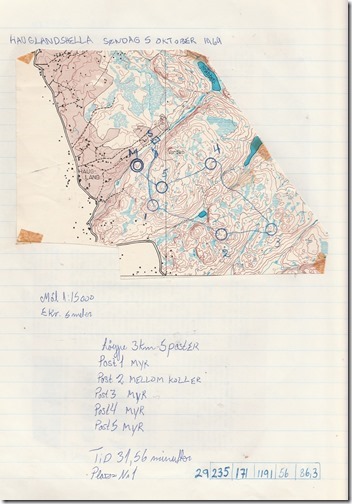 HAUGLANDSHELLA SØNDAG 5 OKTOBER 1969
S
M
4
HAUG-
LAND
5
1
2
3
Mål 1:15000
Ekv. 5 meter
Løype 3km 5 POSTER
Post 1 MYR
Post 2 MELLOM KOLLER
Post 3 MYR
Post 4 MYR
Post 5 MYR
TID 31,56 minutter
Plass No 1
29 235 171 1191 56 36,3